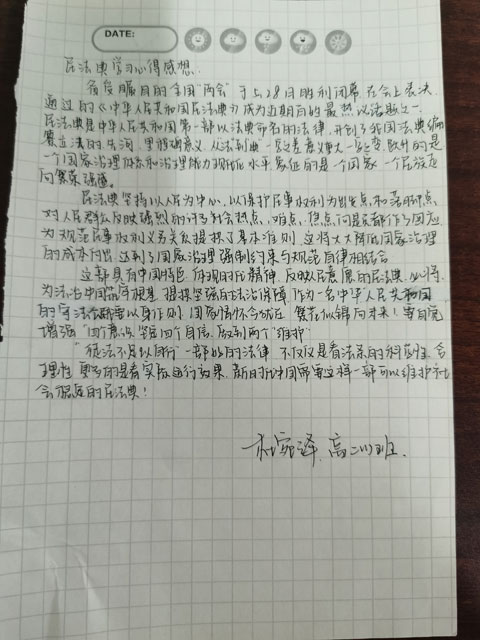 DATE:
民法典学习心得感想.
备受瞩目的全国"两会"于5.28日胜利闭幕 在会上表决
通过的《中华人民共和国民法典》成为近期百的最热议话题之一.
民法典是中华人民共和国第一部以法典命名的法律.开创了我国法典编
纂立法的先河,里程碑意义,从法到典一字之差意义重大一字之变.跃升的是
一个国家治理体系和治理能力现代化水平.象征的是一个国家 一个民族走
向繁荣强盛.
民法典坚持以人民为中心,以保护民事权利为出发点和落脚点,
对人民群众反映强烈的许多社会热点、难点、焦点问题都作了回应
为规范民事权利义务关系提供了基本准则 这将大大降低国家治理
的成本付出 达到了国家治理强制约束与规范自律相结合
这部具有中国特色 体现时代精神 反映人民意愿的民法典,必将
为法治中国筑牢根基 提供坚强的法治保障 作为一名中华人民共和国
增强"四个意识"坚定四个自信,做到两个"维护"
"徒法不足以自行"一部好的法律 不仅仅是看法条的科学性.合
理性 更多的是看实际运行效果.新时代中国需要这样一部可以维护社
会 的民法典!
高二(1)班.